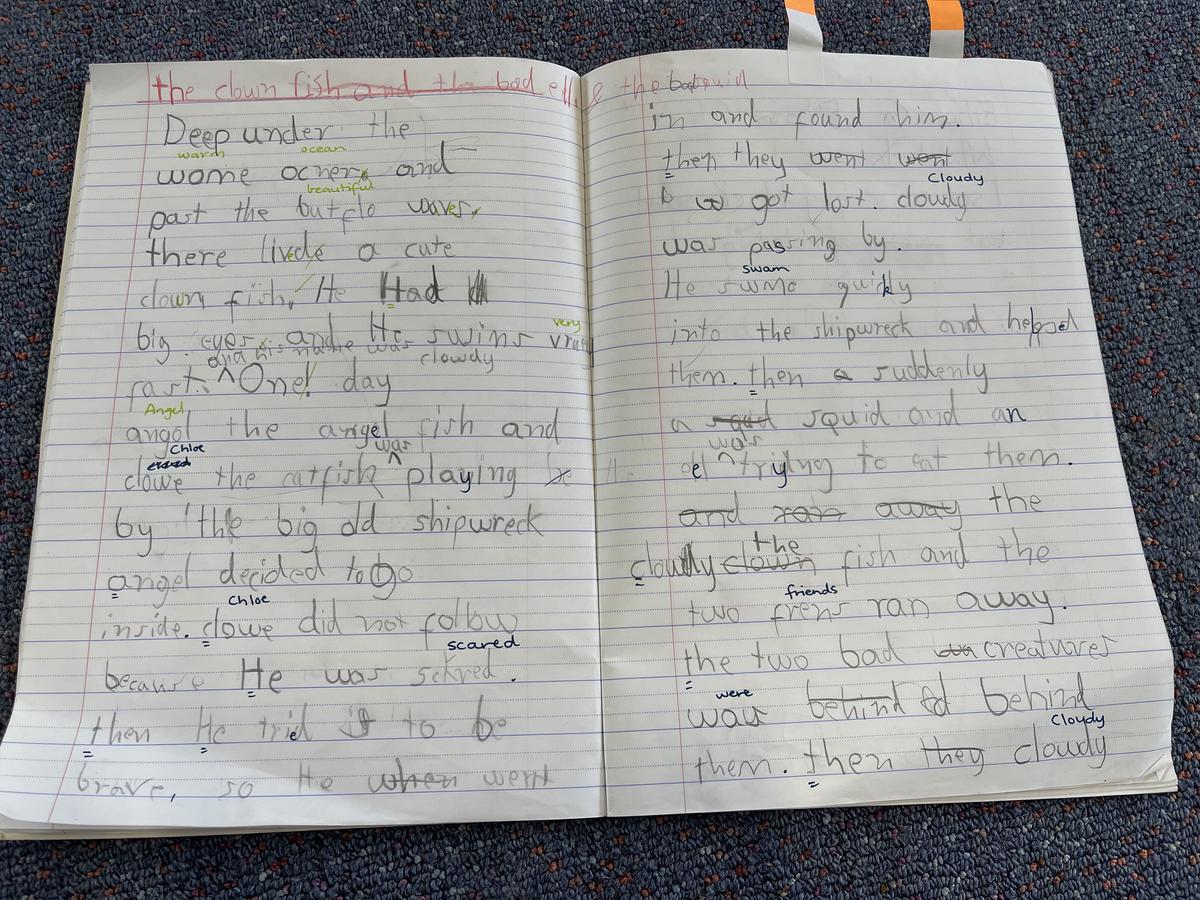 the clown fish and the bad ell, & the bad squid
Deep under the
warm ocean
wome ocner, and
beautiful
past the butflo waves,
there lives a cute
clown fish. He Had
big eyes and He swins very
and his name was clowdy
fast. ^ One day
Angel
angol the angel fish and
Chloe was
clowe the catfish ^ playing
by the big old shipwreck
angel decided to go
Chloe
inside. clowe did not follow
scared
because He was sckred.
then He tried to be
brave, so He when went
in and found him.
then they went went
Cloudy
got lost. cloudy
was passing by.
swam
He swmo quickly
into the shipwreck and helped
them. then a suddenly
a squid and an
was
el ^ trying to eat them.
and ran away the
the
cloudy clown fish and the
friends
two frens ran away.
the two bad creatures
were
was behind behind
Cloudy
them. then they cloudy